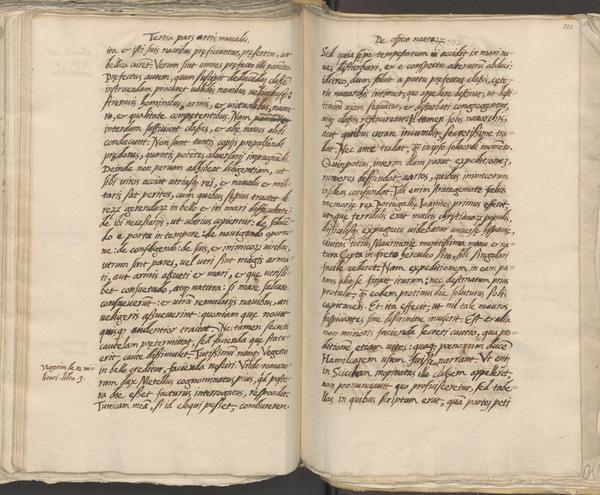 Tertia pars artis naualis.
ita et isti suis nauibus preficiuntur, presertim, ut
bellica curet. Verum sint omnes prefecto illi parentes.
Prefectus autem, quam suscipit deducendam classem
instruendam procuret ualidis nauibus
strenuis hominibus, armis, et uictualibus, nume
ro, et qualitate competentibus. Nam
interdum sufficiunt classes, et alie naues alidi
conducunt. Non sunt tantis copijs propulsandi
predones, quantis potens aduersarius impugnandi.
Deinde non paruam adhibeat diligentiam, ut
sibi uiros asciat utriusque rei, et naualis et mili
taris sat peritos, cum quibus sepius tractet de
rebus gerendis in bello et iti mari difficultate:
de ibi necessarijs, ut uberius
do e portu in tempore: de nauigando oportu
ne: de confligendo: de suis, et inimicorum uiribus,
utrum sint pares, uel uti sint magis arma
ti, aut armis assueti et mari, et que utrisli
bet consuetudo, atque natura: si mare sulcare
consueuerint: et utrum remularijs nauibus, an
ueligeris assueuerint: quoniam que nouit
quisque audentior tractat. Nec tamen secreti
cautelam pretermittat, sed facienda que statu
erit caute dissimulet. Tutissimum namque Vegetio
in bello creditur, facienda nesciri. Vnde romano
rum dux Metellus cognominatus pius, quid poste
ra die esset facturus interrogatus, respondit.
Tunicam meam, si id eloqui posset, comburerem.
Vegetius de re mi
litari. libro. 3.
De officio nautarum
Sed quia sepe tempestatum ui accidit in mari na
ues disturbari, et e conspectu alterutrum abduci:
idcirco, dum soluit a portu prefectus classis, cete
ris nauarchis intimet, quo appellere destinat, ut desti
natum iam sequantur, et disturbati congregentur,
nisi classis Et tamen solis nauarchis,
aut quibus curam incumbit, secretissime tra
dat. Nec ante tradat, quam in ipso soluendi momento.
Quin potius, interim dum parat expeditionem,
rumores diffundat uarios, quibus inimicorum
insidias confundat. Tali enim stratagemate felicis
memorie rex Portugallie Joannes primus effecit,
ut que terribilis erat multis christianorum populis,
difficilisque expugnatu uidebatur uniuerse hispanie,
ciuitas totius Mauritanie munitissima manu et na
tura Cepta in freto herculeo sita, illi singulari
facile cederet. Nam expeditionem in eam pa
rans alio se finxit iturum: nec destinatum prius
protulit, quam eodem protinus die soluturus
capitaneis. Et ita effecit, ut nil tale mauros
suspicantes sine discrimine inuaserit. Est et alia
non minoris facienda secreti cautio, qua pe
ditione etiam uttes: quaque poenorum ducem
Hamilcarem usum fuisse narrant. Vt enim
in Siciliam inopinatus ille classem appelleret,
non pronunciauit quo proficisceretur, sed tabe
llas in quibus scriptum erat, quam partem peti